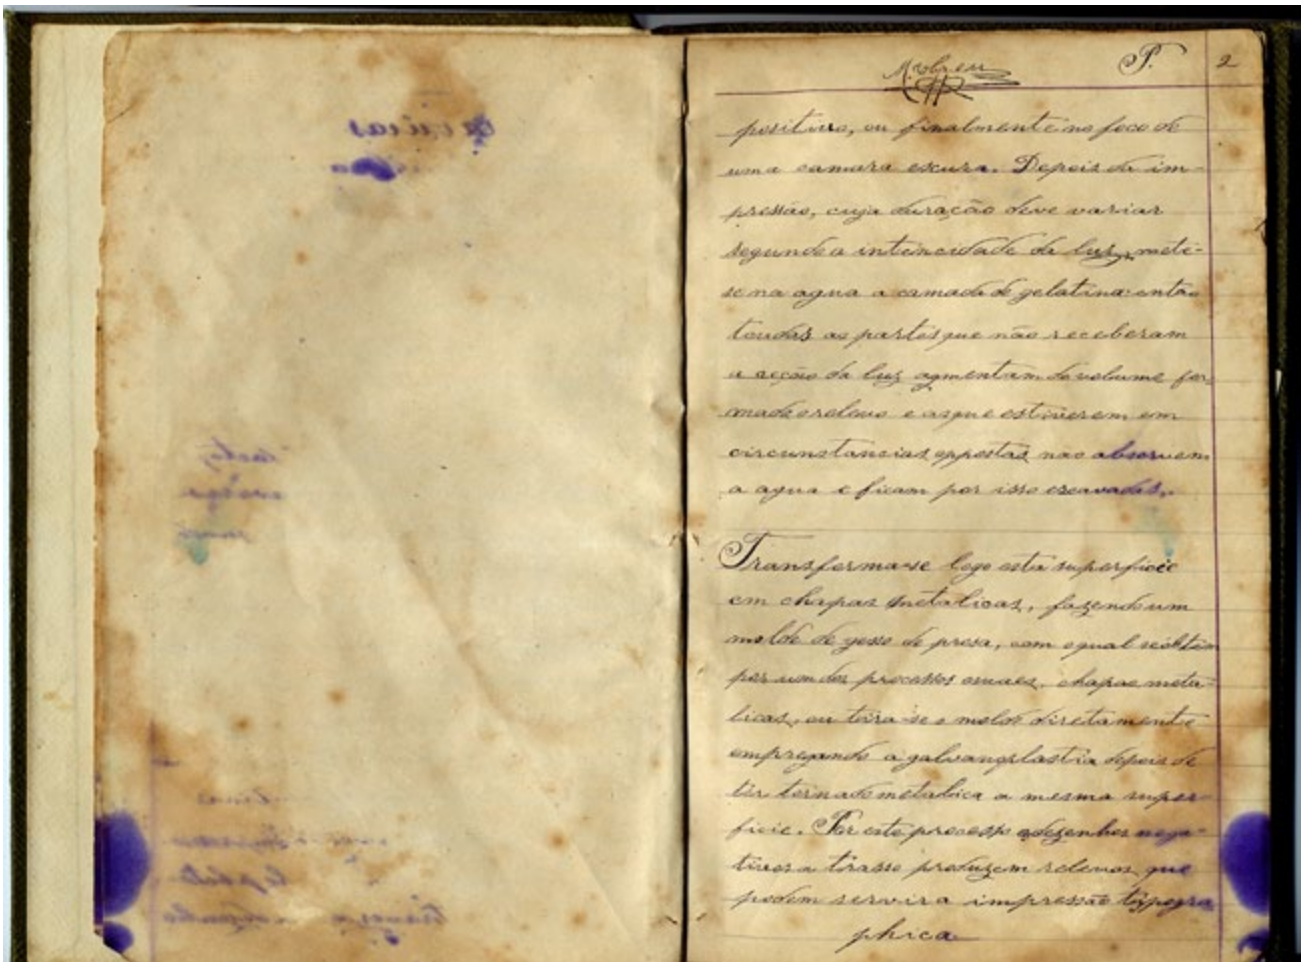 P. 2
positivo, ou finalmente no foco de
uma camara escura. Depois da im-
pressão, cuja duração deve variar
segundo a intencidade da luz, mete-
se na agua a camada de gelatina: então
toudas as partes que não receberam
a acção da luz agmentam de volume for-
mado relevo e as que estiverem em
circunstancias oppostas não absorvem
a agua e ficam por isso excavadas.
Transforma-se logo esta superficie
em chapas metalicas, fazendo um
molde de gesso de presa, com o qual se obtem
por um dos processos chapas meta-
licas, ou tira-se o molde diretamente
empregando a galvanoplastia depois de
ter tornado metalica a mesma super-
ficie. Por este processo os dezenhos nega-
tivos a produzem relevos que
podem servir a impressão typogra
phica